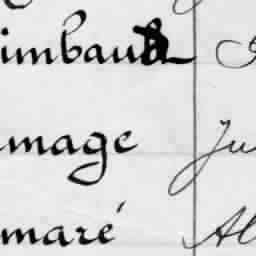 imbaud
mage Ju
maré Al